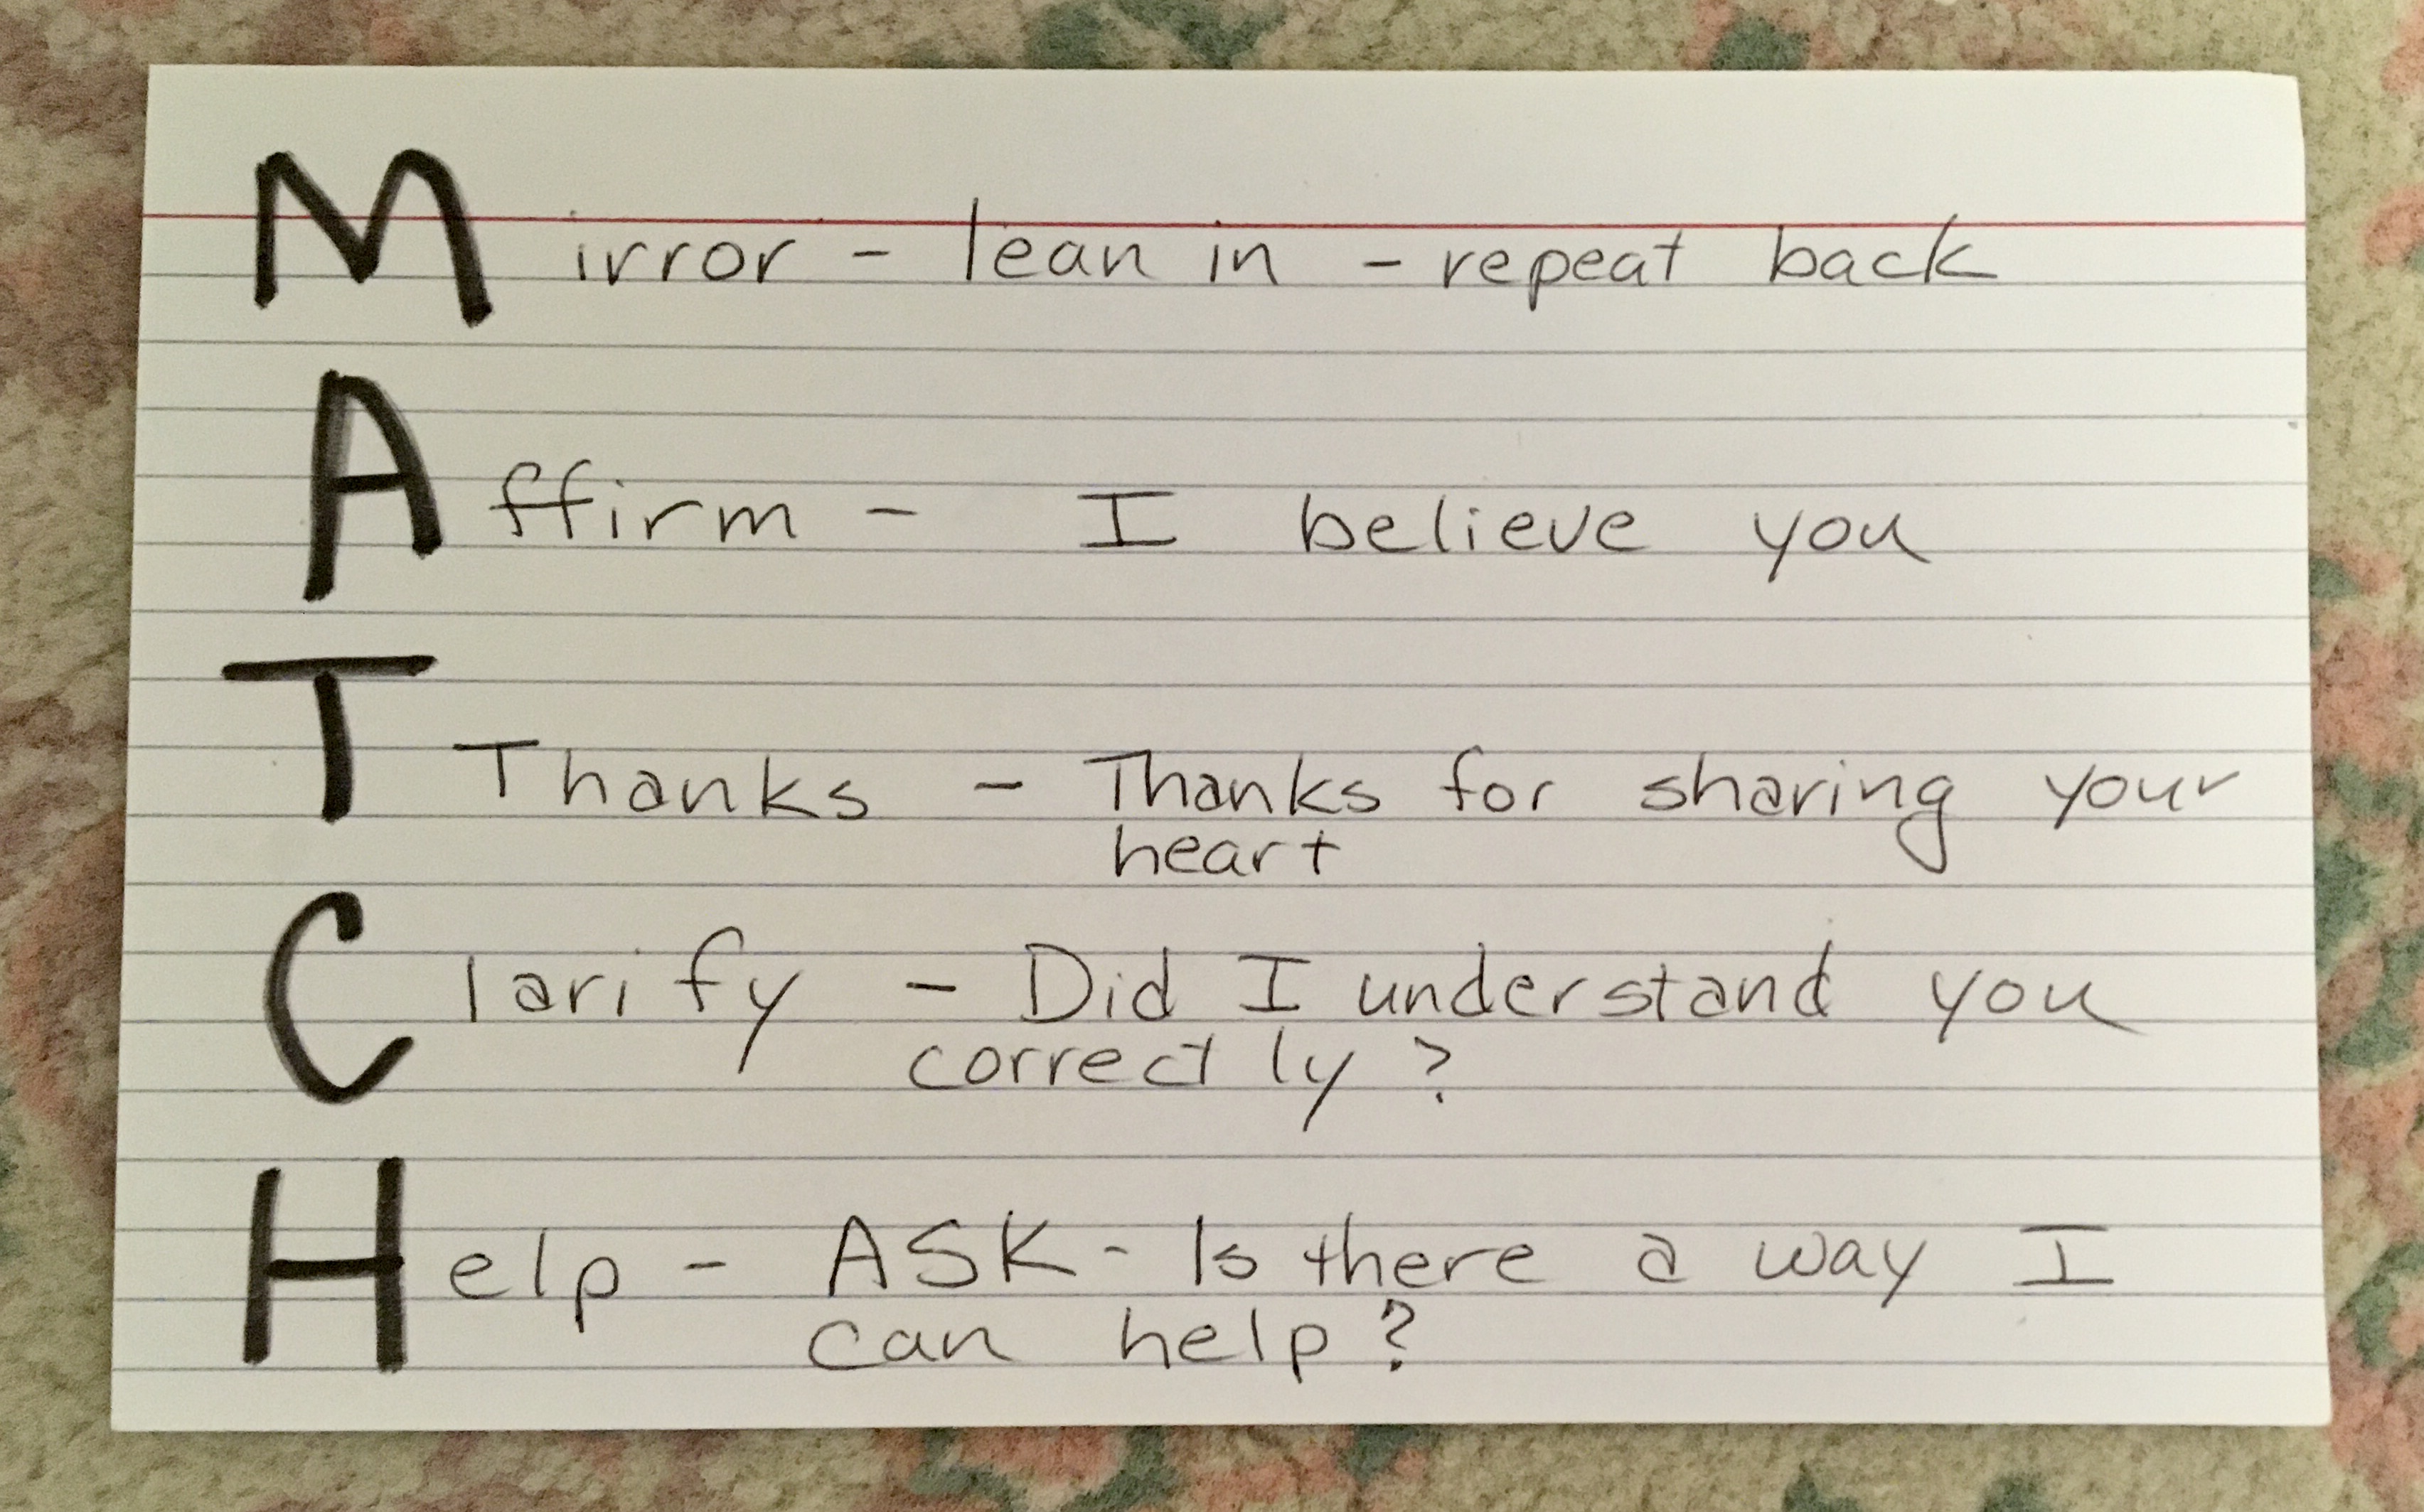 Mirror - lean in - repeat back
Affirm - I believe you
T Thanks - Thanks for sharing your
heart
Clarify - Did I understand you
correctly?
Help - ASK - Is there a way I
can help?